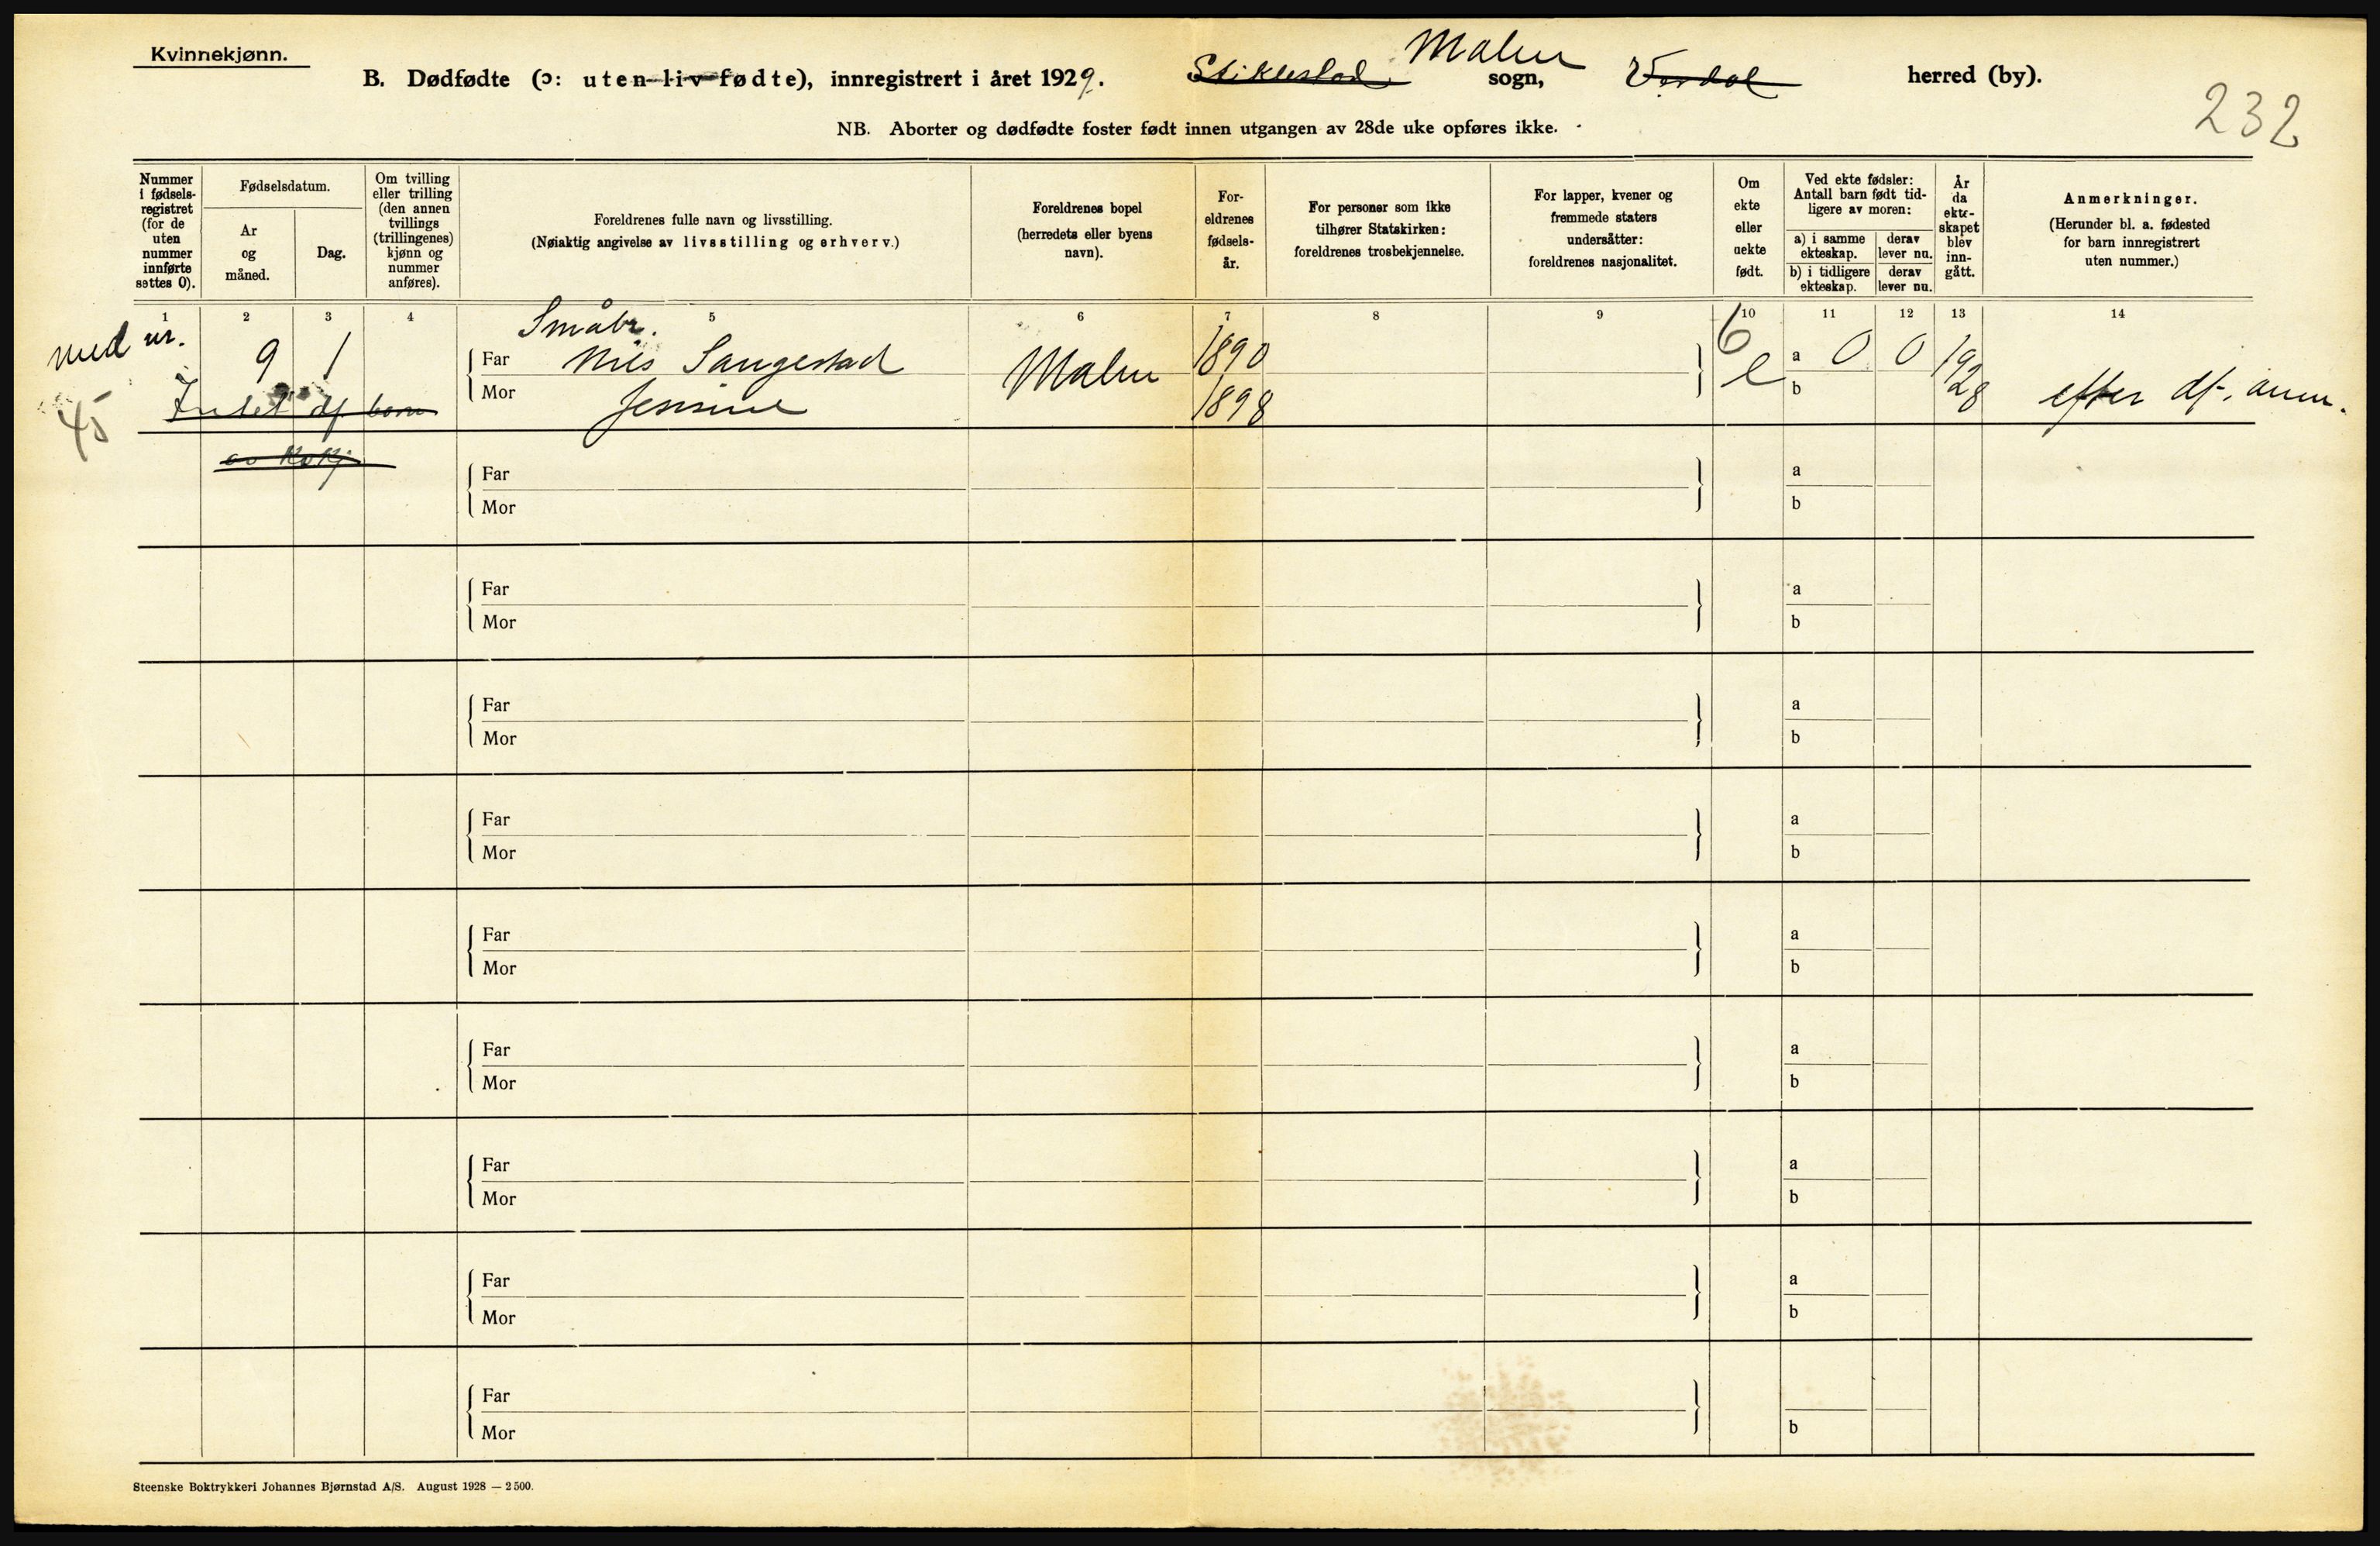 Kvinnekjønn.
Malm
B. Dødfødte (ɔ: uten liv fødte), innregistrert i året 1929. Stiklestad sogn, Verdal herred (by).
232
NB. Aborter og dødfødte foster født innen utgangen av 28de uke opføres ikke.
Nummer i fødsels-registret (for de uten nummer innførte settes 0).
Fødselsdatum.
År og måned.
Dag.
Om tvilling eller trilling (den annen tvillings (trillingenes) kjønn og nummer anføres).
Foreldrenes fulle navn og livsstilling.
(Nøiaktig angivelse av livsstilling og erhverv.)
Foreldrenes bopel (herredets eller byens navn).
For-eldrenes fødsels-år.
For personer som ikke tilhører Statskirken: foreldrenes trosbekjennelse.
For lapper, kvener og fremmede staters undersåtter: foreldrenes nasjonalitet.
Om ekte eller uekte født.
Ved ekte fødsler: Antall barn født tid-ligere av moren:
a) i samme ekteskap.
derav lever nu.
b) i tidligere ekteskap.
derav lever nu.
År da ekte-skapet blev inn-gått.
Anmerkninger.
(Herunder bl. a. fødested for barn innregistrert uten nummer.)
1 2 3 4 5 6 7 8 9 10 11 12 13 14
Småbr.
med nr.
9 1 Far Nils Sangestad Malm 1890 6 e a 0 0 1928
45 Intet df barn Mor Jensine 1898 b efter df. anm.
av kvkj
Far a
Mor b
Far a
Mor b
Far a
Mor b
Far a
Mor b
Far a
Mor b
Far a
Mor b
Far a
Mor b
Far a
Mor b
Far
Mor b
Steenske Boktrykkeri Johannes Bjørnstad A/S. August 1928 — 2500.